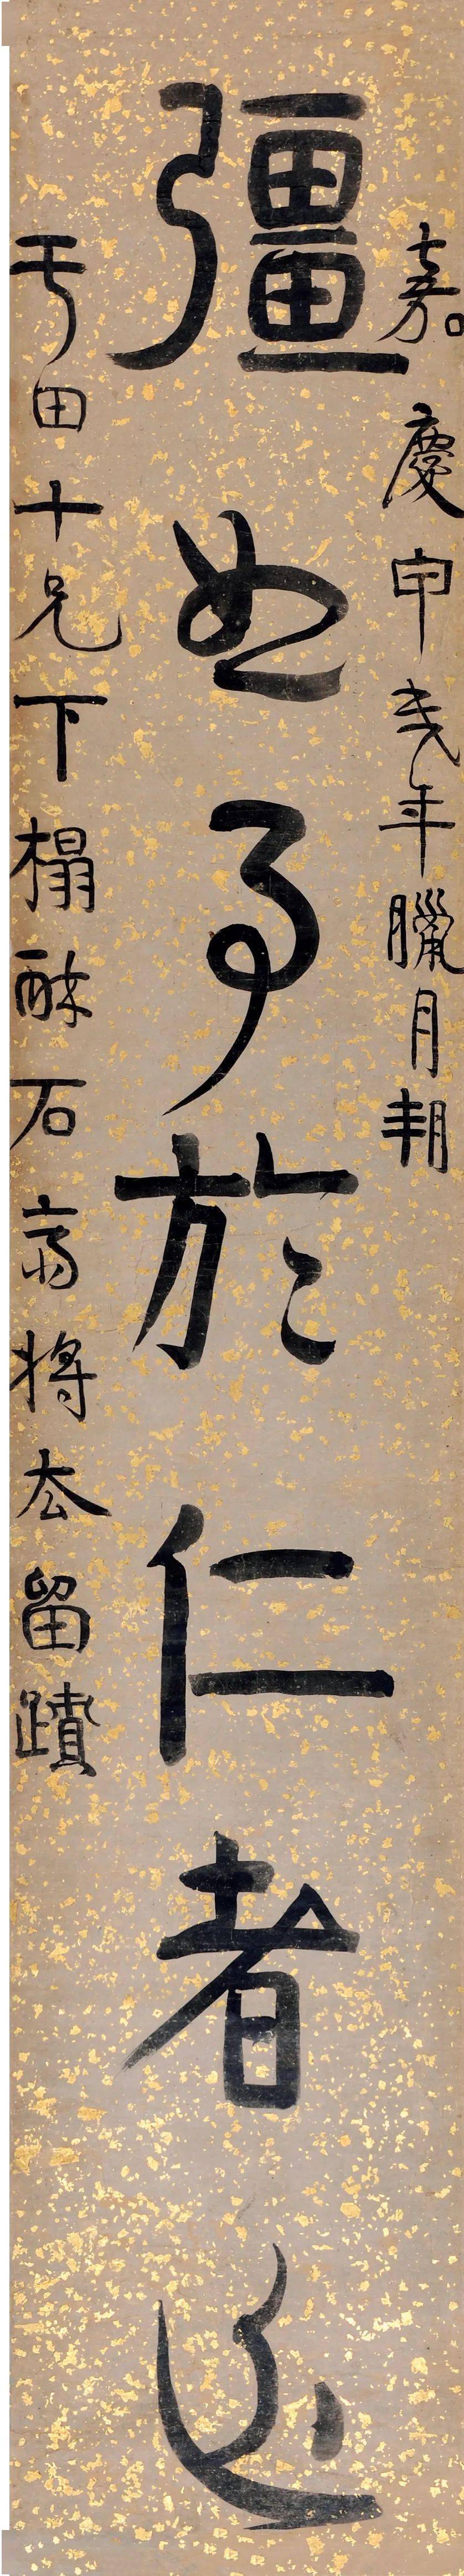 嘉慶甲戌年臘月朔
彊於仁者
于田十兄下榻酥石齋將去留蹟